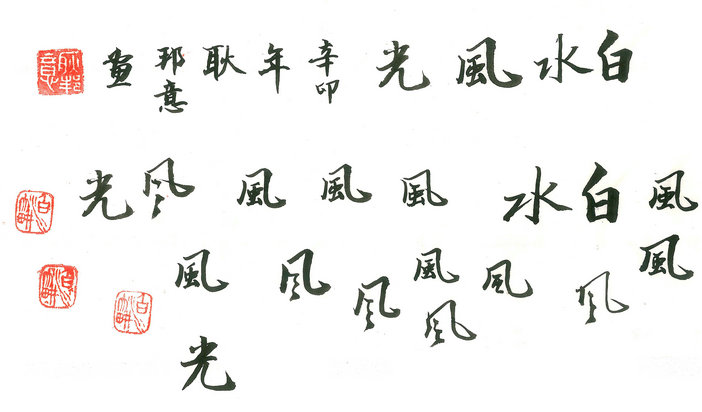 白水風光 辛卯年 耿邦意畫
風 白水 風 風 風 风 光
風 风 風 風 风 风 风 風
光